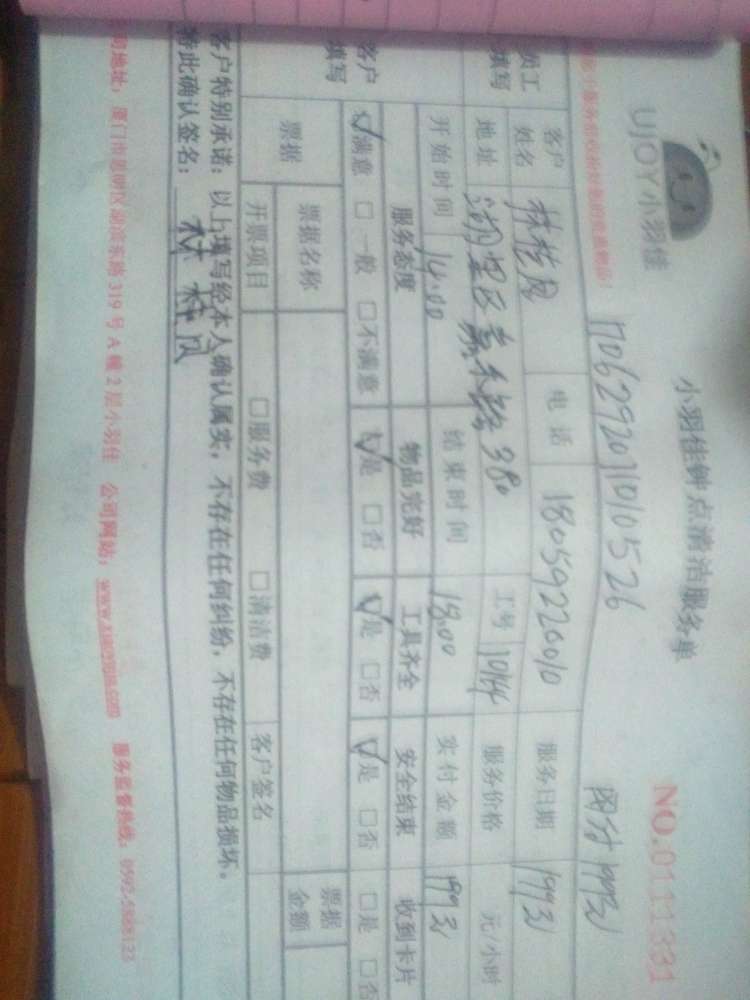 UJOY小羽佳
小羽佳钟点清洁服务单
NO.0111331
1706292011010526
网付199元
员工填写
客户姓名 电话 18059220010 服务日期 199元
地址 湖里区嘉禾路380 工号 10164 服务价格 元/小时
开始时间 14:00 结束时间 18:00 实付金额 199元
客户填写
服务态度 物品完好 工具齐全 安全结束 收到卡片
☑满意 □一般 □不满意 ☑是 □否 ☑是 □否 ☑是 □否 □是 □否
票据 票据名称 票据金额
开票项目 □服务费 □清洁费 客户签名
客户特别承诺：以上填写经本人确认属实，不存在任何纠纷，不存在任何物品损坏。
特此确认签名：
司地址：厦门市思明区湖滨东路319号A幢2层小羽佳 公司网站：www.xiaoyujia.com 服务监督热线：